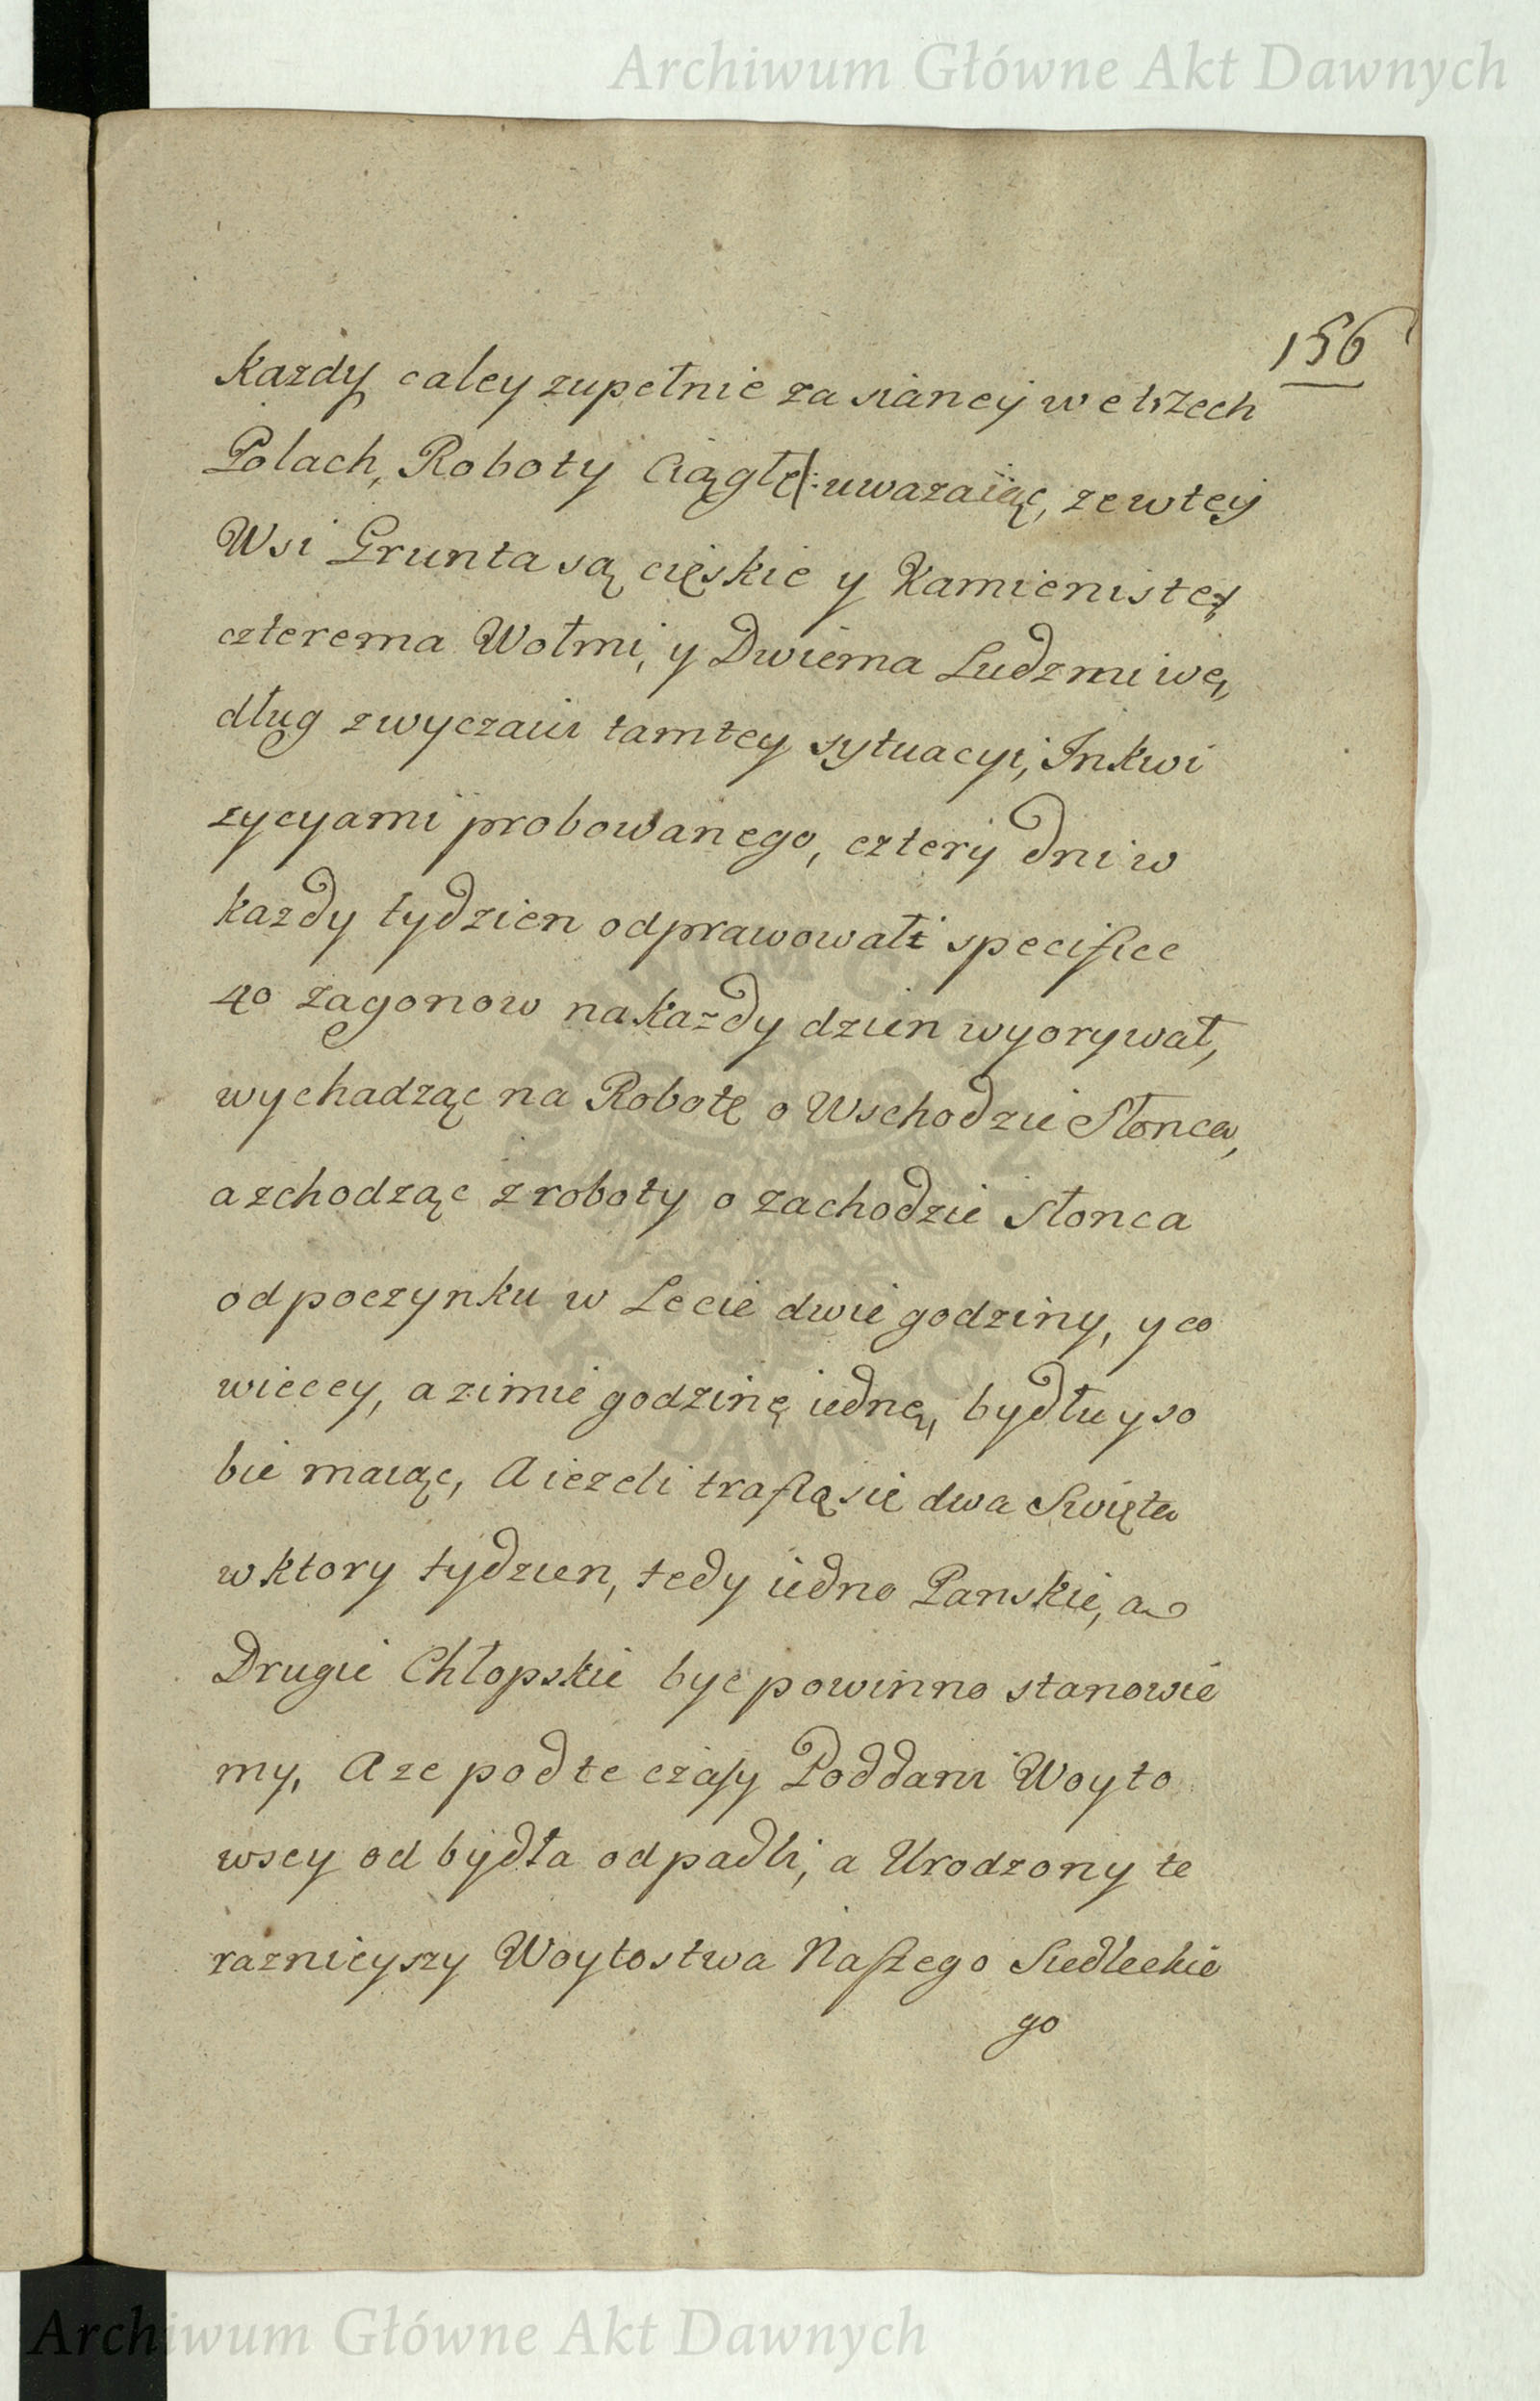 Archiwum Główne Akt Dawnych
156
Kazdy caley zupełnie zasianey we trzech
Polach, Roboty Ciągłe/: uwazaiąc, ze w tey
Wsi Grunta są cięskie y Kamieniste/
czterema Wołmi, y Dwiema Ludzmi we,
dług zwyczaiu tamtey sytuacyi, Inkwi
zycyami probowanego, cztery dni w
kazdy tydzien odprawowali specifice
40 zagonow na kazdy dzien wyorywał,
wychadząc na Robotę o Wschodzie Słonca,
a zchodząc z roboty o zachodzie słonca
odpoczynku w Lecie dwie godziny, y co
wiecey, a zimie godzinę iednę, bydłu y so
bie maiąc, A iezeli trafią sie dwa Swięta
w ktory tydzien, tedy iedno Panskie, a
Drugie Chłopskie byc powinno stanowie
my, A ze pod te czasy Poddani Woyto
wscy od bydła odpadli, a Urodzony te
raznieyszy Woytostwa Naszego Siedleckie
go
ARCHIWUM GŁÓWNE
AKT DAWNYCH
Archiwum Główne Akt Dawnych